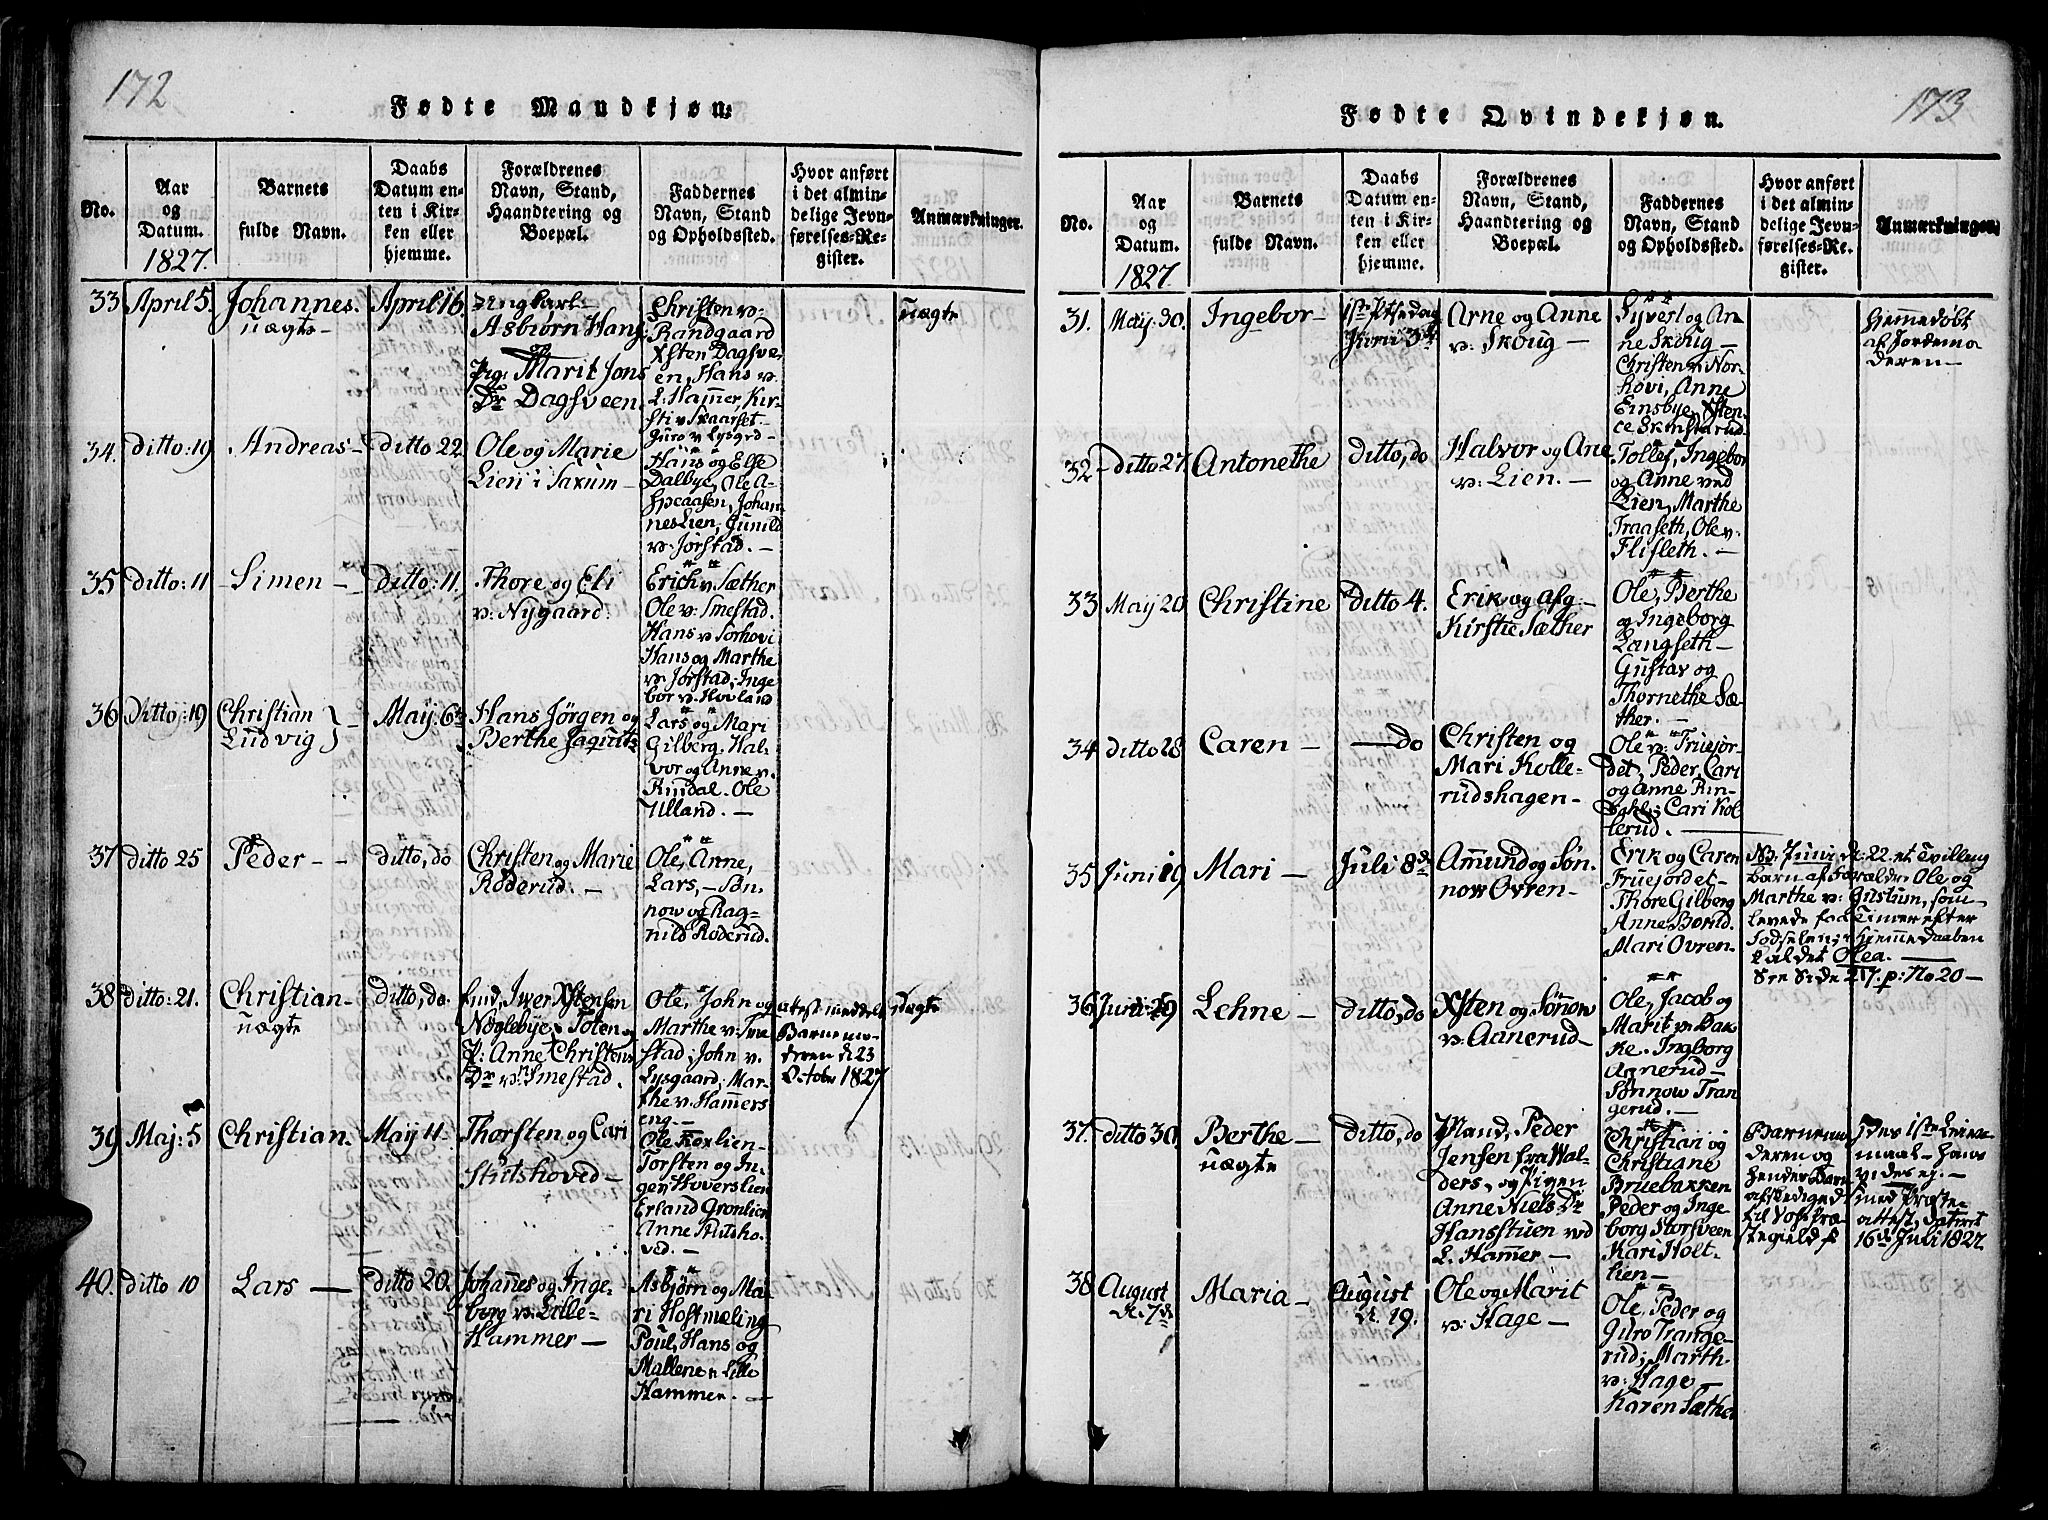 172
Fødte Mandkjøn.
No.
Aar
og
Datum.
1827.
Barnets
fulde Navn.
Daabs
Datum en-
ten i Kir-
ken eller
hjemme.
Forældrenes
Navn, Stand,
Haandtering og
Boepæl.
Faddernes
Navn, Stand
og Opholdssted.
Hvor anført
i det almin-
delige Jevn-
førelses-Re-
gister.
Anmærkninger.
33
April 5.
Johannes.
uægte
April 16.
Ungkarl
Asbiørn Hans
Pig: Marit Jons
Dr Dagsveen.
Christen v:
Randgaard
Xsten Dagsve
en, Hans v.
L. Hamer, Kir-
sti v Skaarset.
Guro v. Lysgrd
uægte
34.
ditto: 19
Andreas
ditto 22
Ole og Marie
Lien i Saxum
Hans og Else
Dalbye, Ole A-
speaasen, Johan
nes Lien, Gunild
v: Jørstad.
35
ditto: 11
Simen
ditto: 11.
Thore og Eli
v: Nygaard.
Erich v. Sæther
Ole v: Smestad.
Hans v Sørhovi
Hans og Marthe
v: Jørstad, Inge
bor v. Hovland
36
Ditto: 19
Christian
Ludvig
May 6te
Hans Jørgen og
Berthe
Lars og Mari
Gilberg, Hal-
vor og Anne v.
Rindal. Ole
Ulland.
37
ditto 25
Peder
ditto, do
Christen og Marie
Røderud.
Ole, Anne,
Lars, Søn-
now og Rag-
nild Røderud.
38
ditto: 21.
Christian
uægte
ditto, do.
Iwer Xstensen
Nøglebye, Toten og
P: Anne Christens
Dr v: Smestad.
Ole, John og
Marthe v: Sme
stad; John v.
Lysgaard; Mar-
the v: Hammers
eng.
atest meddelt
Barnemo-
deren d 23
Octobr 1827
uægte
39
Maj: 5
Christian.
May 11.
Thorsten og Cari
Stutshoved
Ole Koxlien
Torsten og In-
ger Hoverslien
Erland Grønlien
Anne Stutsho-
ved.
40.
ditto 10
Lars
ditto 20.
Johanes og Inge-
borg v: Lille-
Hammer
Asbjørn og Ma-
ri Hostmæling
Poul, Hans og
Mallene v Lille
Hammer.
173
Fødte Qvindekjøn.
No.
Aar
og
Datum.
1827.
Barnets
fulde Navn.
Daabs
Datum en-
ten i Kir-
ken eller
hjemme.
Forældrenes
Navn, Stand,
Haandtering og
Boepæl.
Faddernes
Navn, Stand
og Opholdssted.
Hvor anført
i det almin-
delige Jevn-
førelses-Re-
gister.
Anmærkninger.
31.
May 30.
Ingebor
Juni 3d
Arne og Anne
v: Skoug
Syverl og An-
ne Skoug
Christen v Nor-
hovi, Anne
Einsbye, Xsten-
ce Skinstarud.
Hjemmedøbt
af Jordemo
deren
32
ditto 27.
Antonethe
ditto, do
Halvor og Ane
v: Lien.
Tollef, Ingebor
og Anne ved
Lien, Marthe
Traaseth, Ole v.
Flisleth.
33
May 20
Christine
ditto 4.
Erik og afg:
Kirstie Sæther
Ole, Berthe
og Ingeborg
Langseth
Gustav og
Thornethe Sæ-
ther.
34
ditto 28
Caren
do
Christen og
Mari Kolle-
rudshagen
Ole v: Fruejor-
det, Peder, Cari
og Anne Rin-
Cari Kol-
lerud.
35
Juni 19
Mari
Juli 8de
Amund og Søn-
now Ovren
Erik og Caren
Fruejordet
Thore Gilberg
Anne Borud.
Mari Ovren
NB. Juni d: 22. et Tvilling
barn af Forældre Ole og
Marthe v: Gustum, som
levede faa Timer efter
Fødselen; i hjemme daaben
kaldet Olea.
See Side 217. p: No 20
36
Juni 29
Lehne
ditto, do
Xsten og Sønow
v: Aanerud
Ole, Jacob og
Marit v Bak
ke. Ingborg
Aanerud
Sønnow Tran
gerud.
37.
ditto 30
Berthe
uægte
ditto, do
Mand, Peder
Jensen fra Wal-
ders, og Pigen
Anne Niels Dr
Hansstuen ved
L. Hamer
Christian og
Christiane
Bruebakken
Peder og Inge
borg Storsveen
Kari Holt-
lien
Barnemo
deren og
hendes Barn
afskediged
til Vos Præ-
stegield f
des 1ste Leier-
maal hans
vides ej.
med Prøste
attest, dateret
16de Juli 1827.
38
August
d. 7de
Maria
August
d. 19.
Ole og Marit
v: Hage
Ole, Peder og
Guro Trange-
rud; Marth
v: Hage
Karen Sæthe